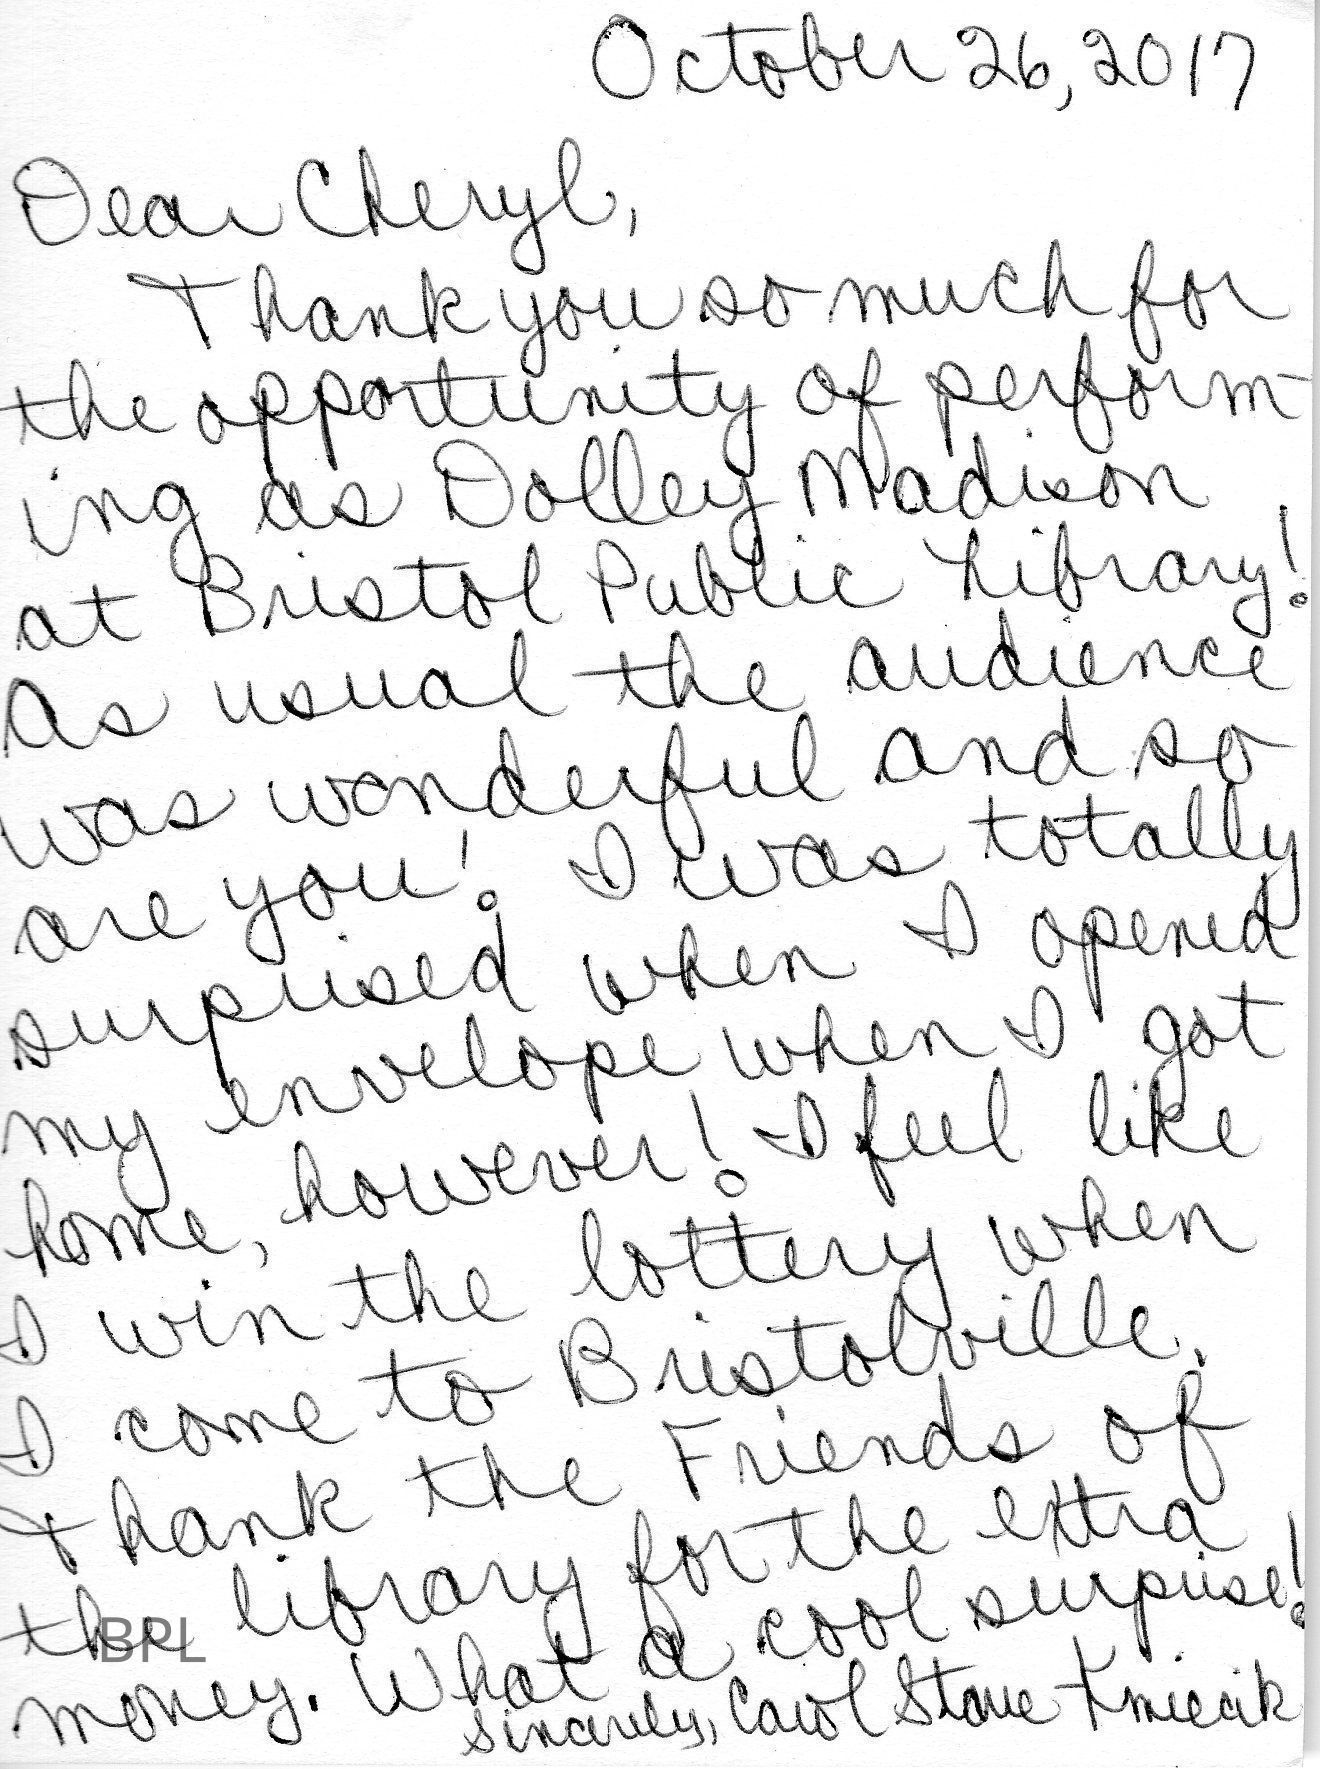 October 26, 2017
Dear Cheryl,
Thank you so much for
the opportunity of perform-
ing as Dolley Madison
at Bristol Public Library!
As usual the audience
was wonderful and so
are you! I was totally
surprised when I opened
my envelope when I got
home, however! I feel like
I win the lottery when
I come to Bristolville.
Thank the Friends of
the library for the extra
money. What a cool surprise!
Sincerely, Carol Starre-Kmiecik
BPL